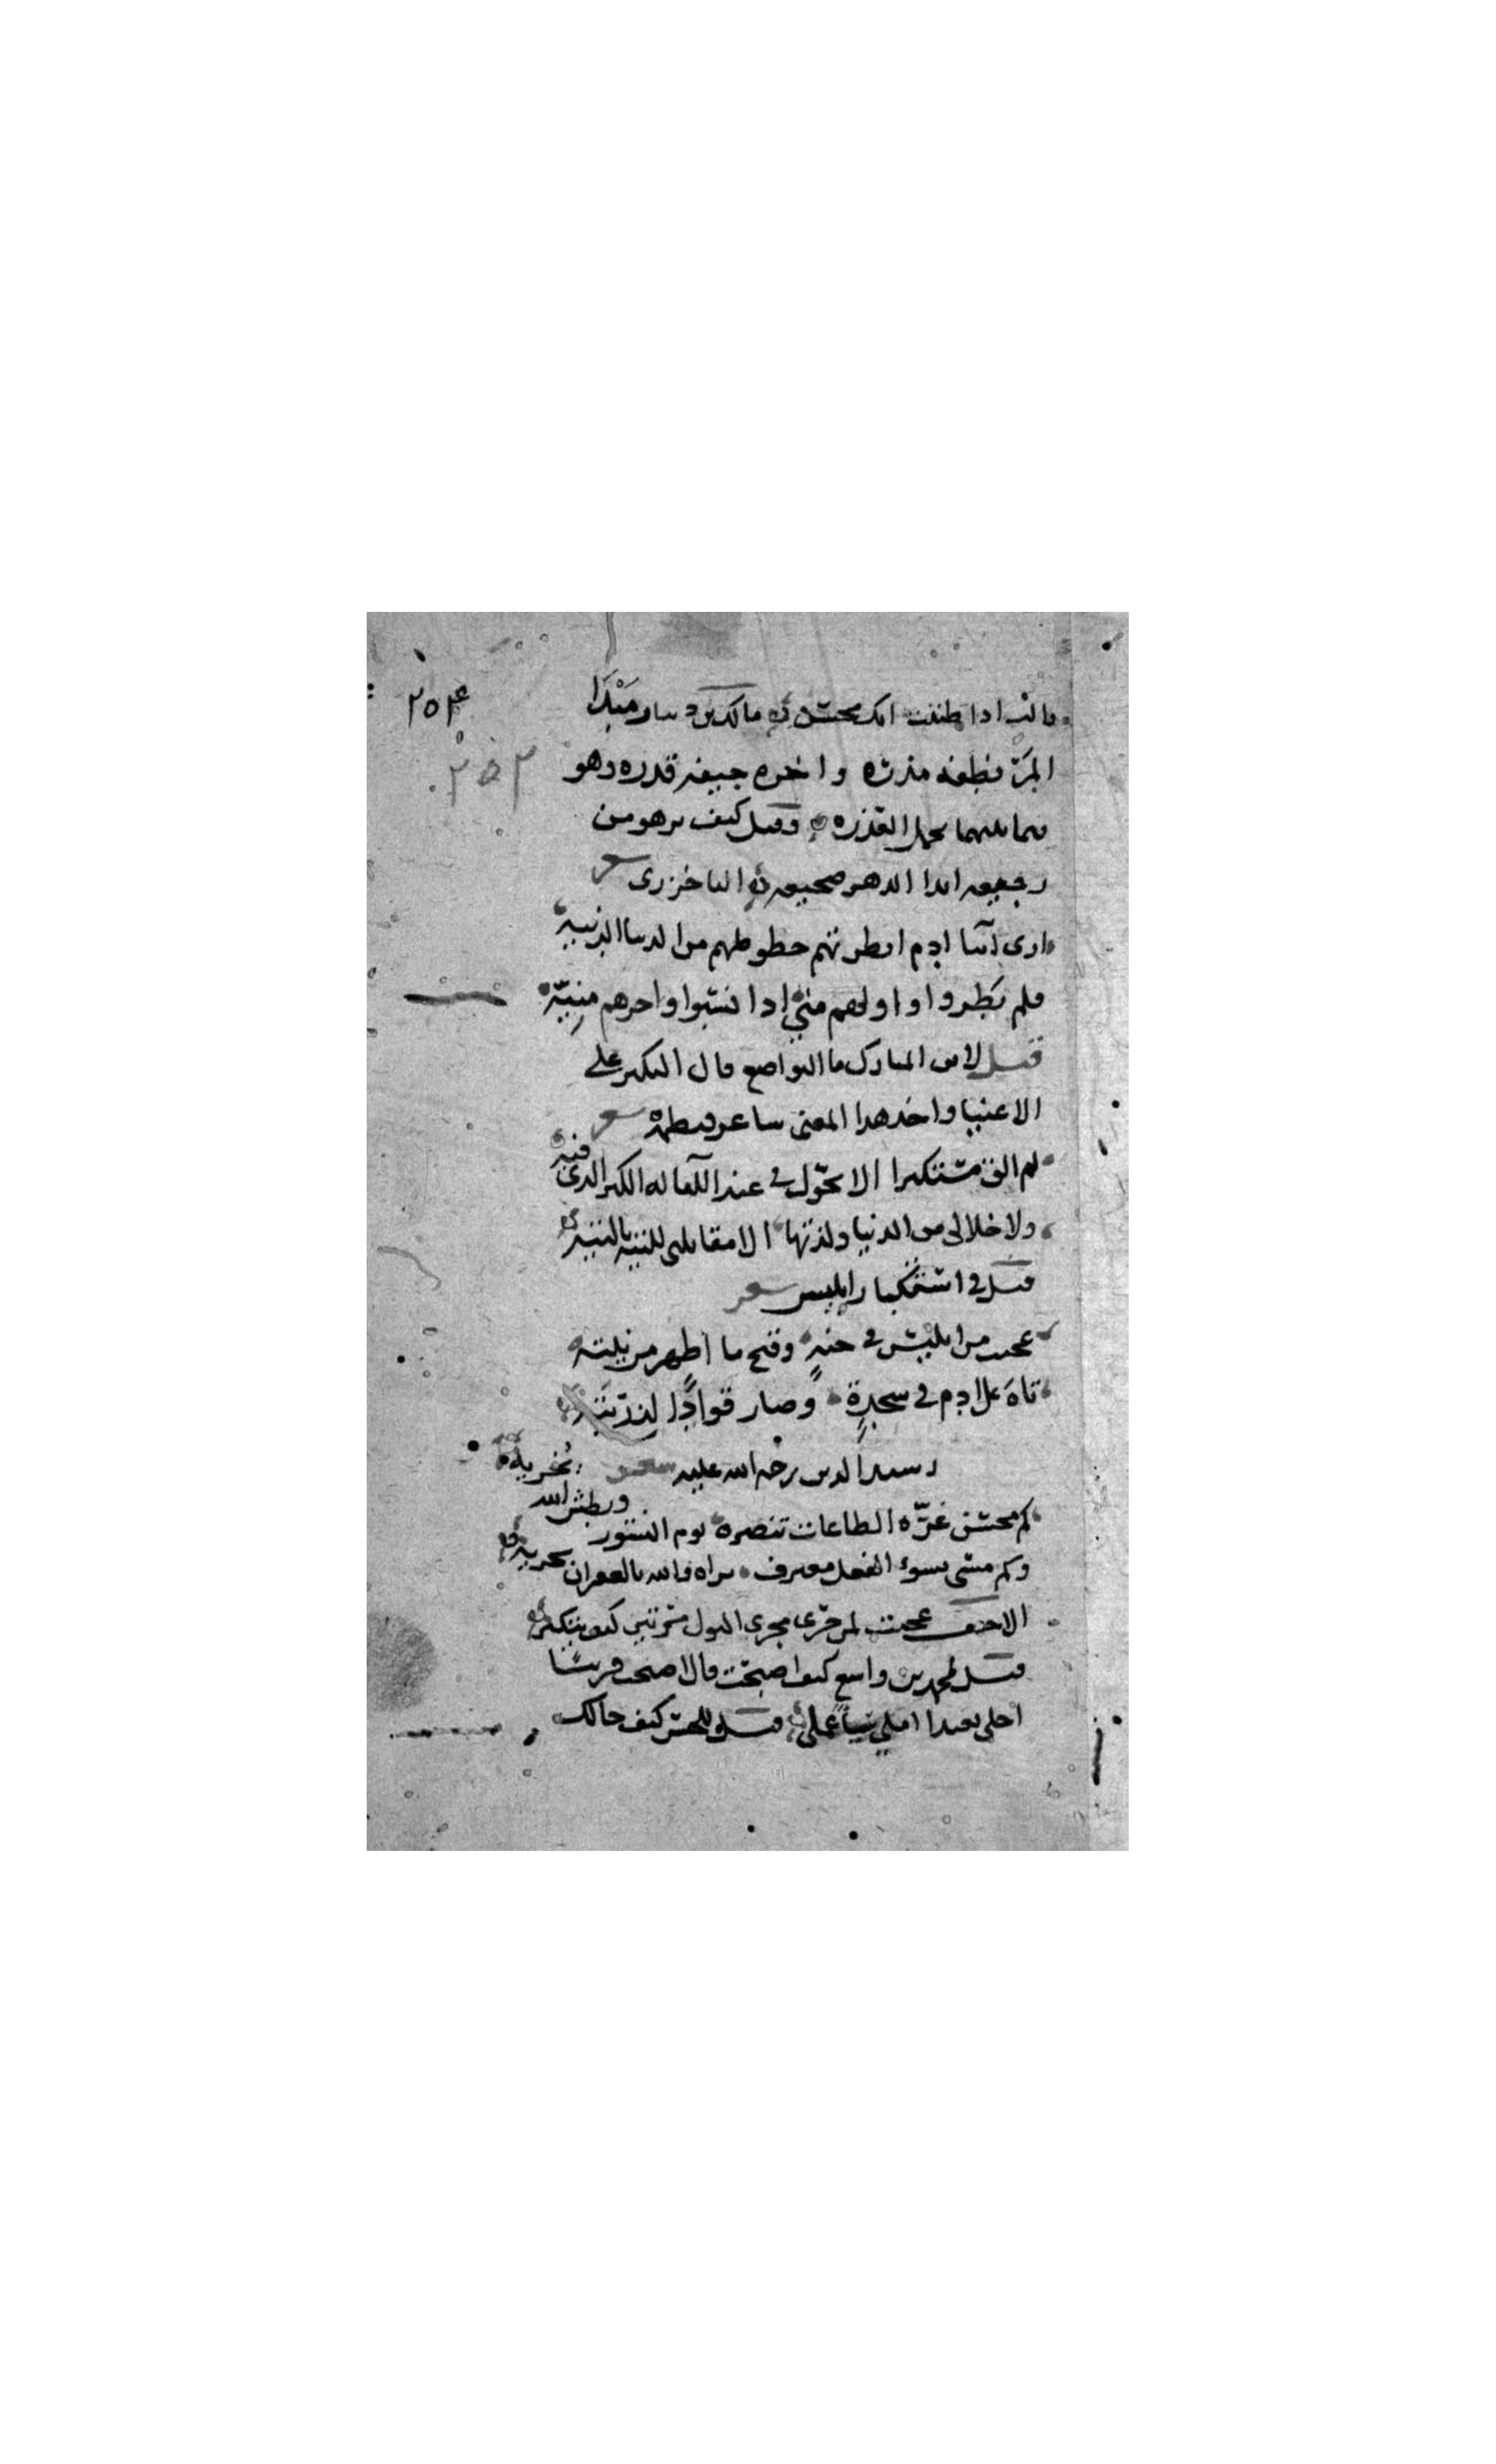 قالت اذا ظننت انك محسن مالك بن دينار مبدا
المرء نطفة مذره واخره جيفة قذره وهو
فيما بينهما يحمل القذره وقيل كيف يزهو من
رجيعه ابدا الدهر ضجيعه الباخرزى شعر
ارى ابنا ادم ابطرتهم حظوظهم من الدنيا الدنيه
فلم بطروا واولهم منى اذا نسبوا واخرهم منيه
قيل لابن المبارك ما التواضع قال التكبر على
الاغنيا واخذ هذا المعنى شاعر ونظمه شعر
لم الق مستكبرا الا تحول لى عند اللقا له الكبر الذى فيه
ولا حلا لى من الدنيا ولذتها الا مقابلتى للتيه بالتيه
قيل فى استكبار ابليس شعر
عجبت من ابليس فى وقبح ما اظهر من نيته
تاه على ادم فى سجدة وصار قوادا لذريته
رشيد الدين رحمة الله عليه شعر
كم محسن غره الطاعات تنصره يوم النشور وبطش الله يخزيه
وكم مسى بسوء الفعل معترف تراه والله بالغفران يجزيه
الاحنف عجبت لمن جرى مجرى البول مرتين كيف يتكبر
قيل لمحمد بن واسع كيف اصبحت قال اصبحت قريبا
اجلى بعيدا املى سيئا عملى قيل للحسن كيف حالك
٢٥٤
٢٥٣